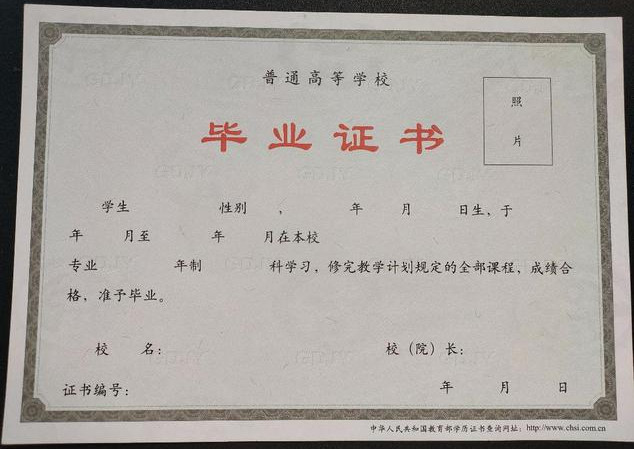 普通高等学校
照
片
毕业证书
学生 性别 , 年 月 日生，于
年 月至 年 月在本校
专业 年制 科学习，修完教学计划规定的全部课程，成绩合
格，准予毕业。
校 名： 校（院）长：
证书编号： 年 月 日
中华人民共和国教育部学历证书查询网址：http://www.chsi.com.cn